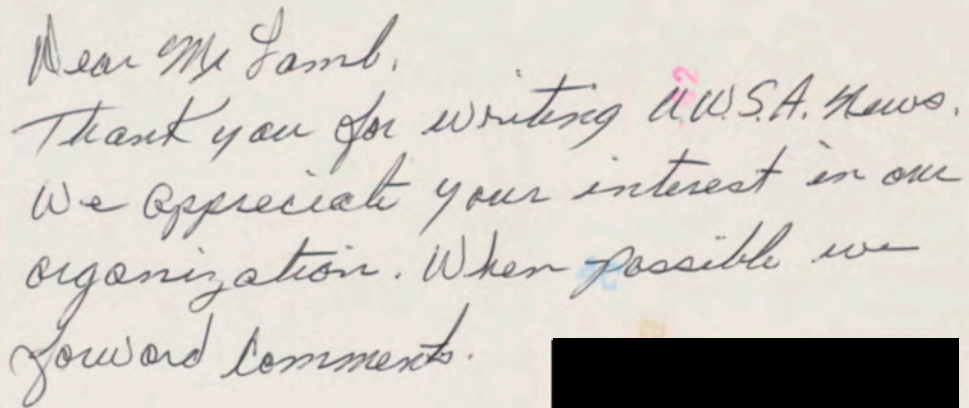 Dear Mr Lamb.
Thank you for writing U.W.S.A. News.
We appreciate your interest in our
organization. When possible we
forward comments.